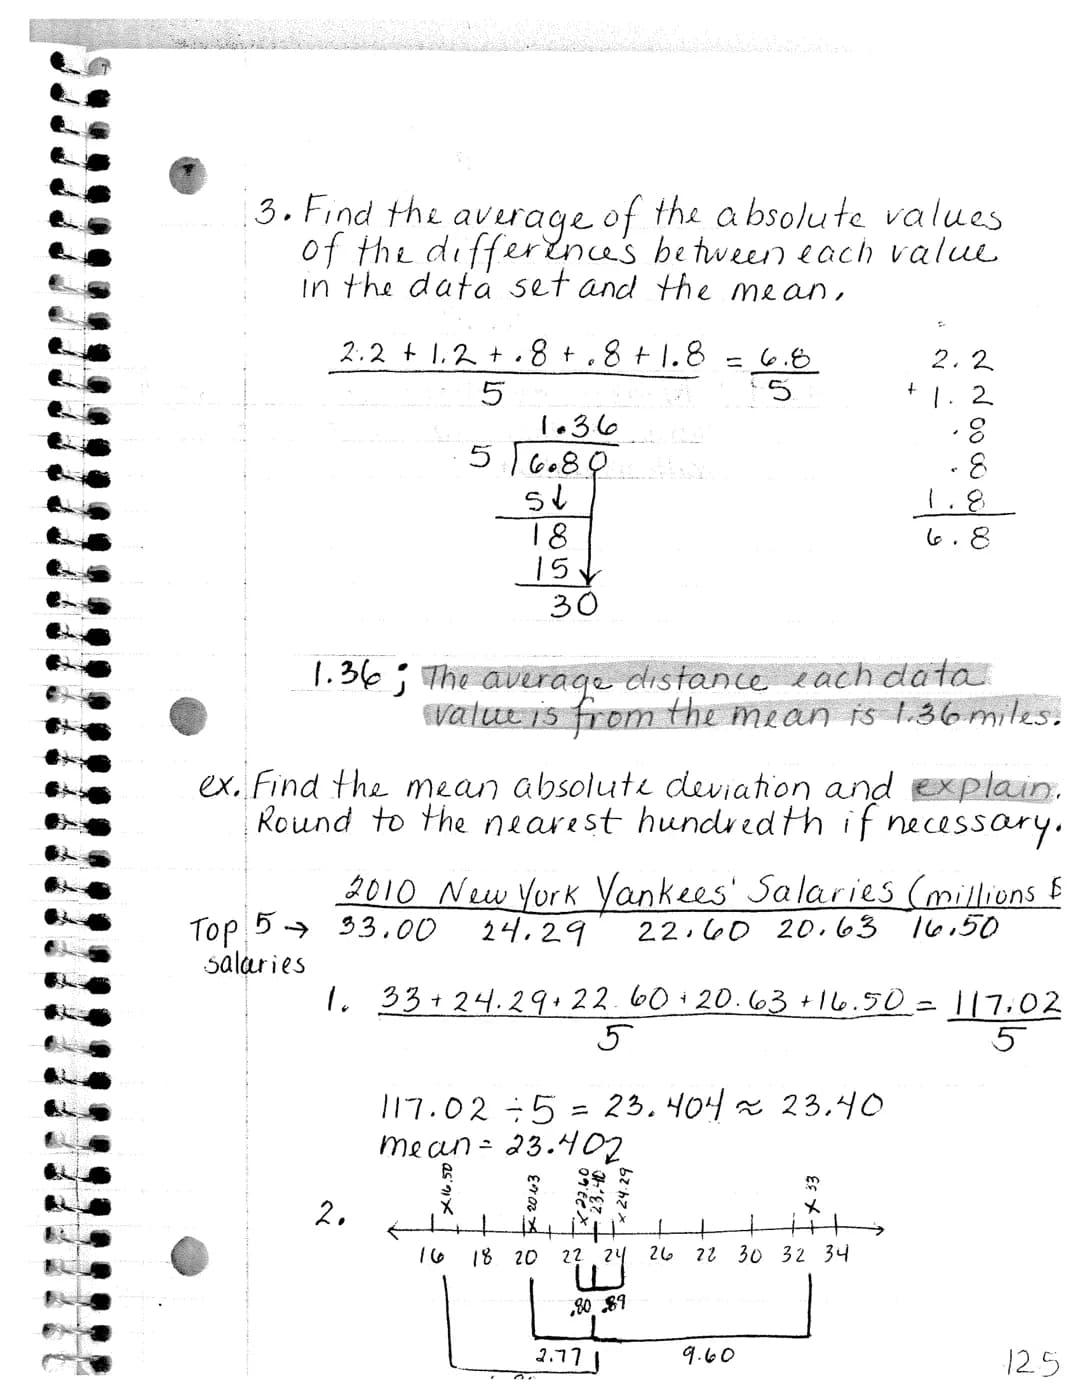 3. Find the average of the absolute values
of the differences between each value
in the data set and the mean.
2.2 + 1.2 + .8 + .8 + 1.8 = 6.8
5 5
2.2
+ 1.2
.8
.8
1.8
6.8
1.36
5 6.80
5↓
18
15
30
1.36; The average distance each data
value is from the mean is 1.36 miles.
ex. Find the mean absolute deviation and explain.
Round to the nearest hundredth if necessary.
2010 New York Yankees' Salaries (millions $
Top 5 → 33.00 24.29 22.60 20.63 16.50
salaries
1. 33 + 24.29 + 22.60 + 20.63 + 16.50 = 117.02
5 5
117.02 ÷ 5 = 23.404 ≈ 23.40
mean = 23.40
2.
x 16.50 x 20.63 x 22.60 23.40 x 24.29 x 33
16 18 20 22 24 26 22 30 32 34
.80 .89
2.77 9.60
125